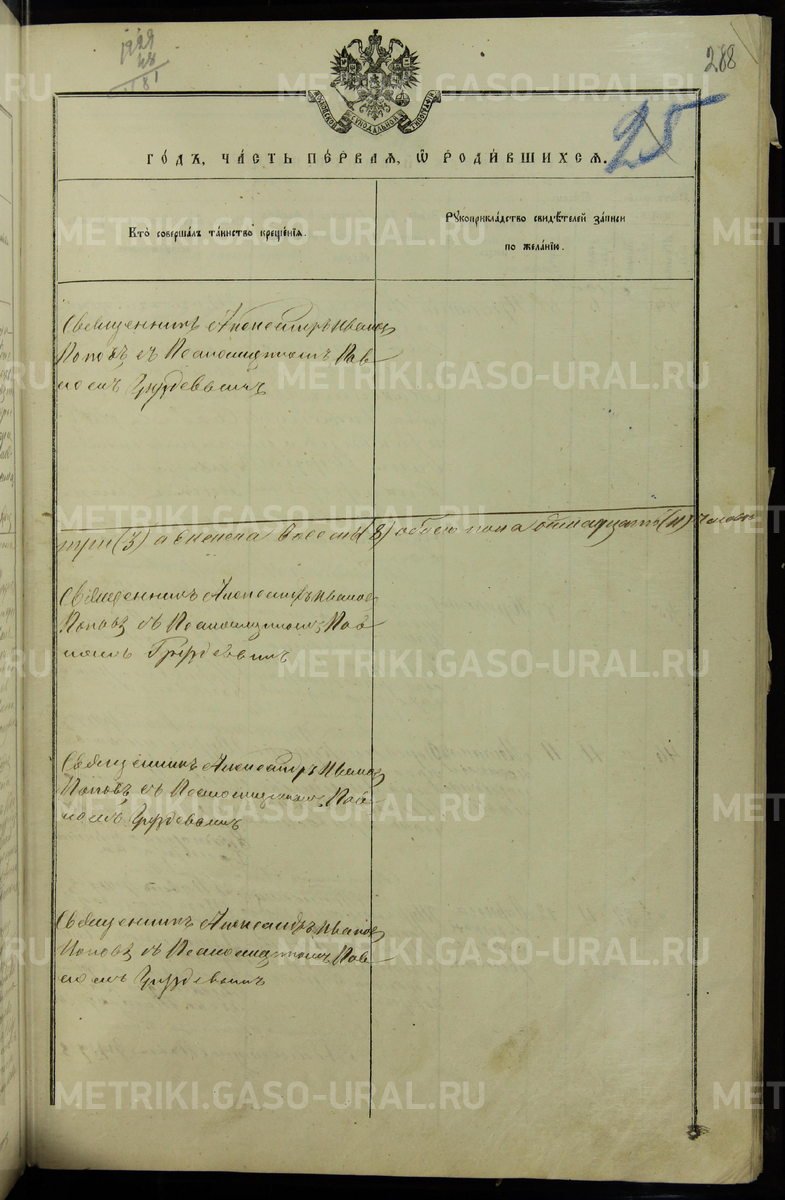 288
25
МОСКОВСКОЙ СѴНОДАЛЬНОЙ ТИПОГРАФІИ
ГО́ДЪ, ЧА́СТЬ ПЕ́РВАЯ, Ѿ РОДИ́ВШИХСЯ.
Кто̀ соверша́лъ та́инство креще́нїѧ.
Рꙋкоприкла́дство свидѣ́телей за́писи
по жела́нїю.
Священникъ Александръ Иванов
Поповъ съ Псаломщикомъ Пав
ломъ Груздевымъ
три (3) а женска восемь (8) обоего пола одинадцать (11) человек
Священникъ Александръ Иванов
Поповъ съ Псаломщикомъ Пав
ломъ Груздевымъ
Священникъ Александръ Иванов
Поповъ съ Псаломщикомъ Пав
ломъ Груздевымъ
Священникъ Александръ Иванов
Поповъ съ Псаломщикомъ Пав
ломъ Груздевымъ
METRIKI.GASO-URAL.RU